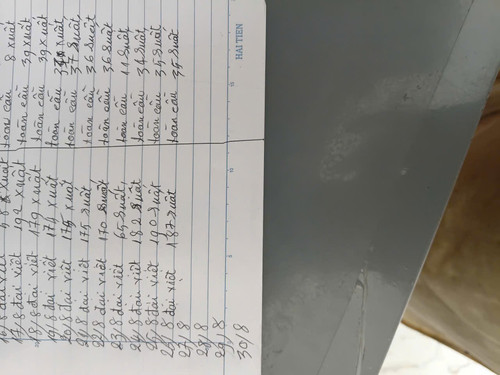 đại việt xuất toàn cầu 8 xuất
17/8 đại việt 192 xuất toàn cầu 39 xuất
18/8 đại việt 179 xuất toàn cầu 39 xuất
19/8 đại việt 174 xuất toàn cầu xuất
20/8 đại việt 175 xuất toàn cầu 37 suất
21/8 đại việt 175 suất toàn cầu 36 suất
22/8 đại việt 170 suất toàn cầu 36 suất
23/8 đại việt 65 suất toàn cầu 11 suất
24/8 đại việt 182 suất toàn cầu 34 suất
25/8 đại việt 190 suất toàn cầu 35 suất
26/8 đại việt 187 suất toàn cầu 35 suất
27/8
28/8
29/8
30/8
HẢI TIẾN